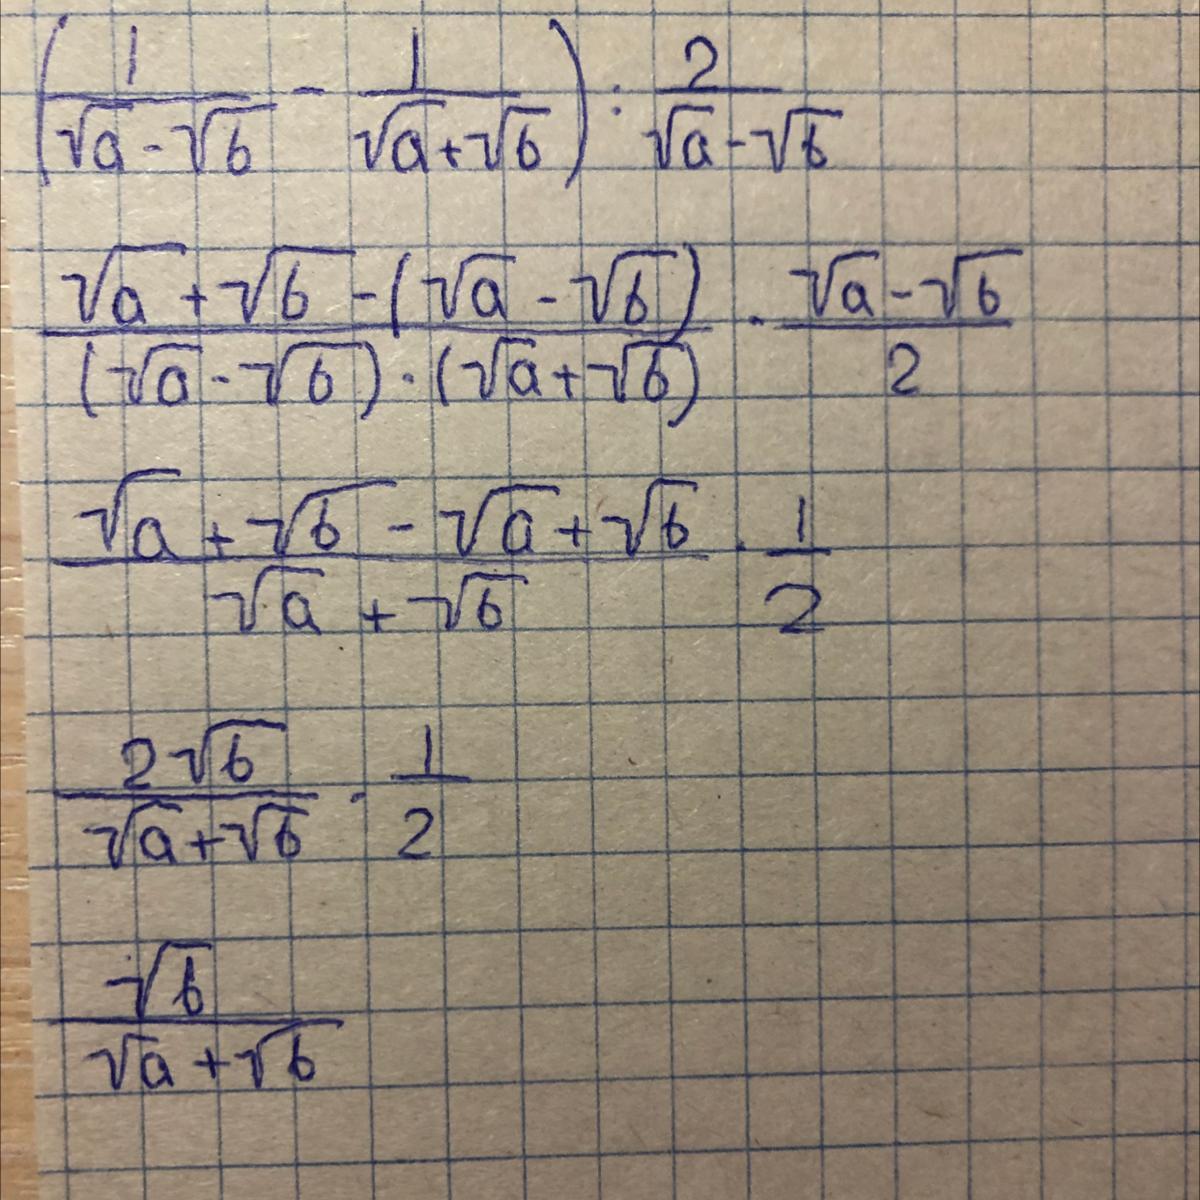 (1/(√a - √b) - 1/(√a + √b)) : 2/(√a - √b)
(√a + √b - (√a - √b))/((√a - √b) · (√a + √b)) · (√a - √b)/2
(√a + √b - √a + √b)/(√a + √b) · 1/2
2√b/(√a + √b) · 1/2
√b/(√a + √b)